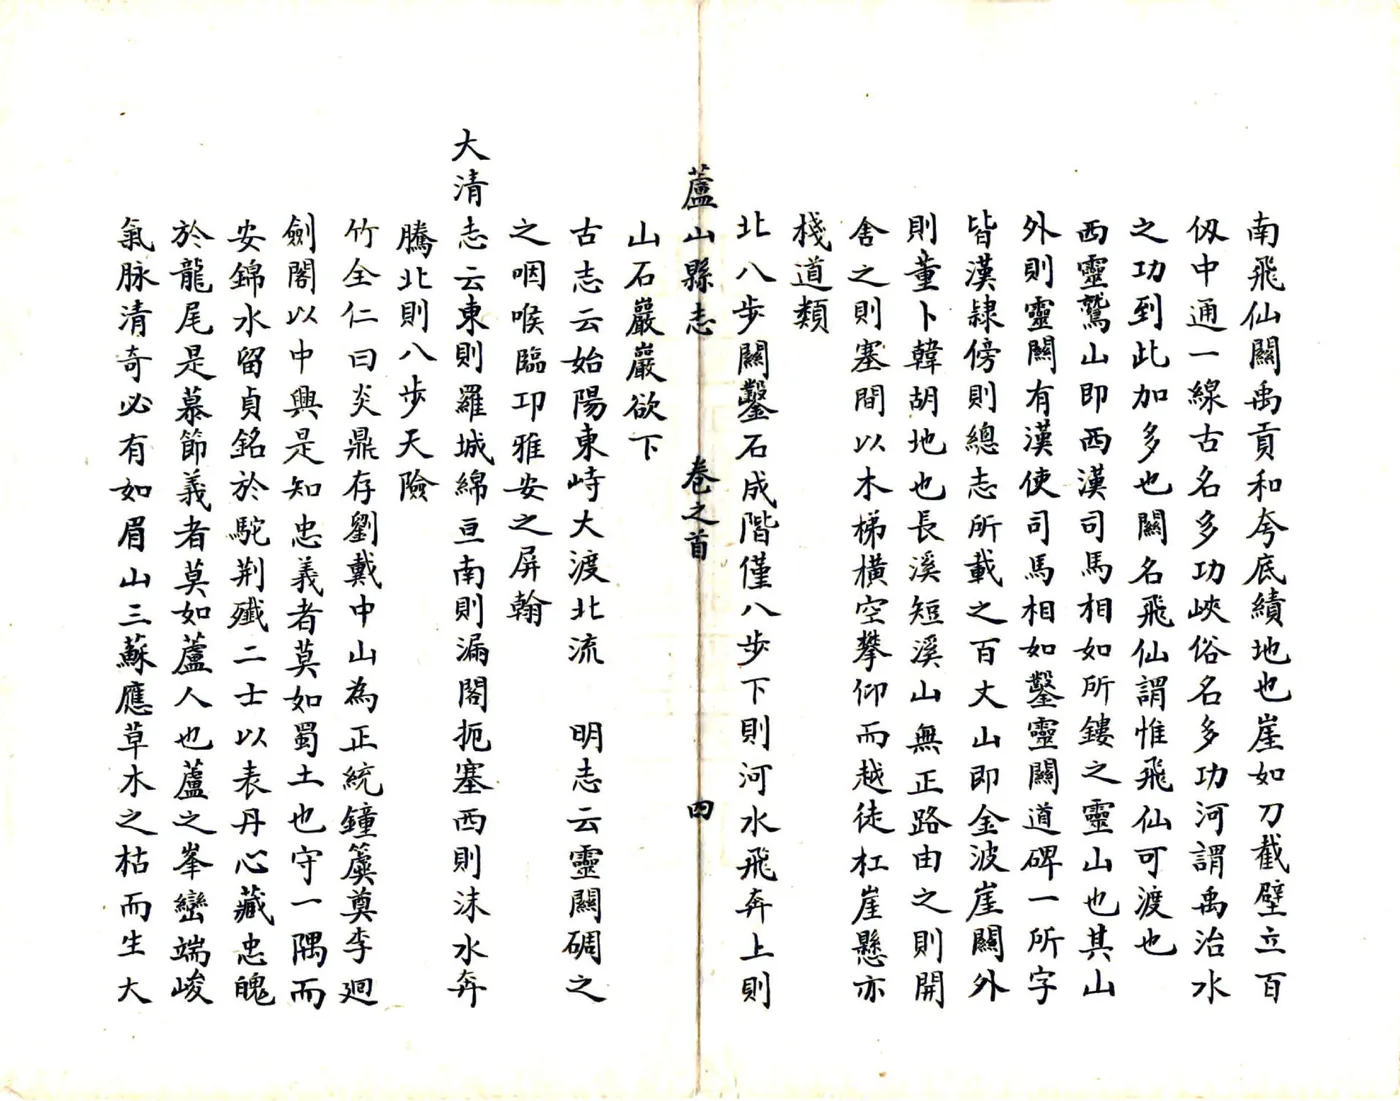 南飛仙關禹貢和夸底績地也崖如刀截壁立百
仭中通一線古名多功峽俗名多功河謂禹治水
之功到此加多也關名飛仙謂惟飛仙可渡也
西靈鷲山即西漢司馬相如所鏤之靈山也其山
外則靈關有漢使司馬相如鑿靈關道碑一所字
皆漢隸傍則總志所載之百丈山即金波崖關外
則董卜韓胡地也長溪短溪山無正路由之則開
舍之則塞間以木梯橫空攀仰而越徒杠崖懸亦
棧道類
北八步關鑿石成階僅八步下則河水飛奔上則
蘆山縣志 卷之首 四
山石巖巖欲下
古志云始陽東峙大渡北流 明志云靈關碉之
之咽喉臨邛雅安之屏翰
大清志云東則羅城綿亘南則漏閣扼塞西則沫水奔
騰北則八步天險
竹全仁曰炎鼎存劉戴中山為正統鐘簴奠李廻
劍閣以中興是知忠義者莫如蜀土也守一隅而
安錦水留貞銘於駝荆殲二士以表丹心藏忠魄
於龍尾是慕節義者莫如蘆人也蘆之峯巒端峻
氣脉清奇必有如眉山三蘇應草木之枯而生大